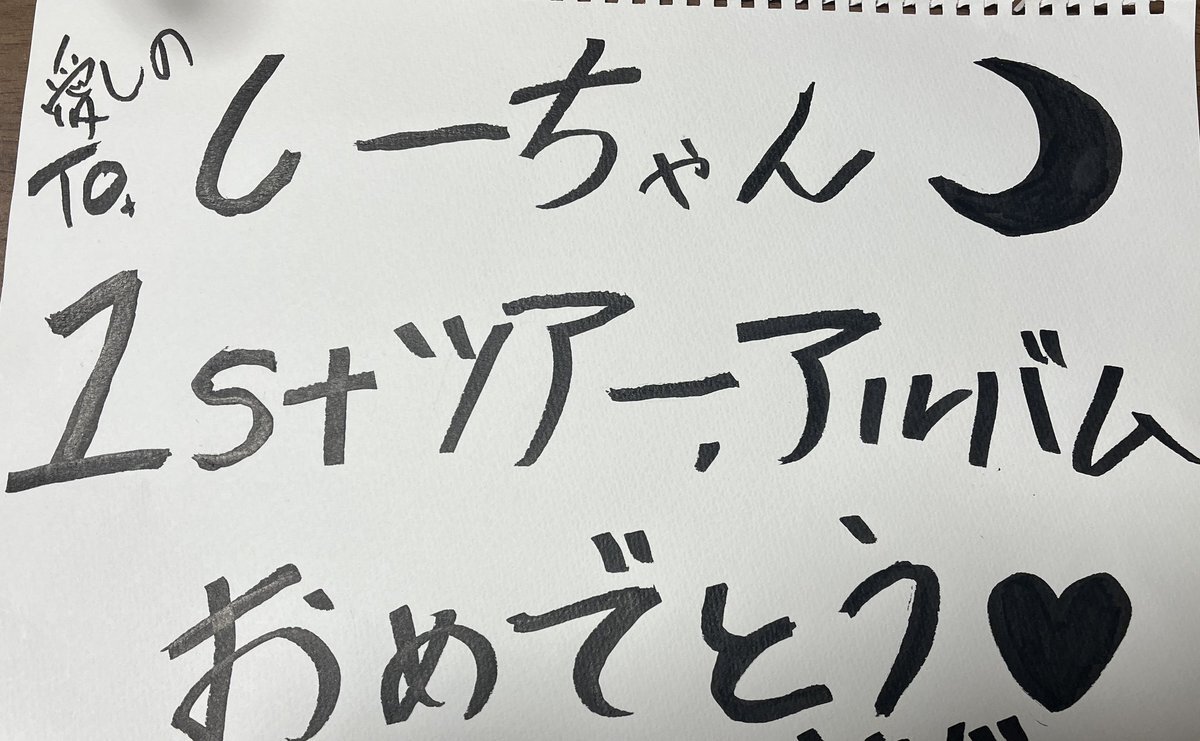 愛しの
To. しーちゃん
1stツアー,アルバム
おめでとう